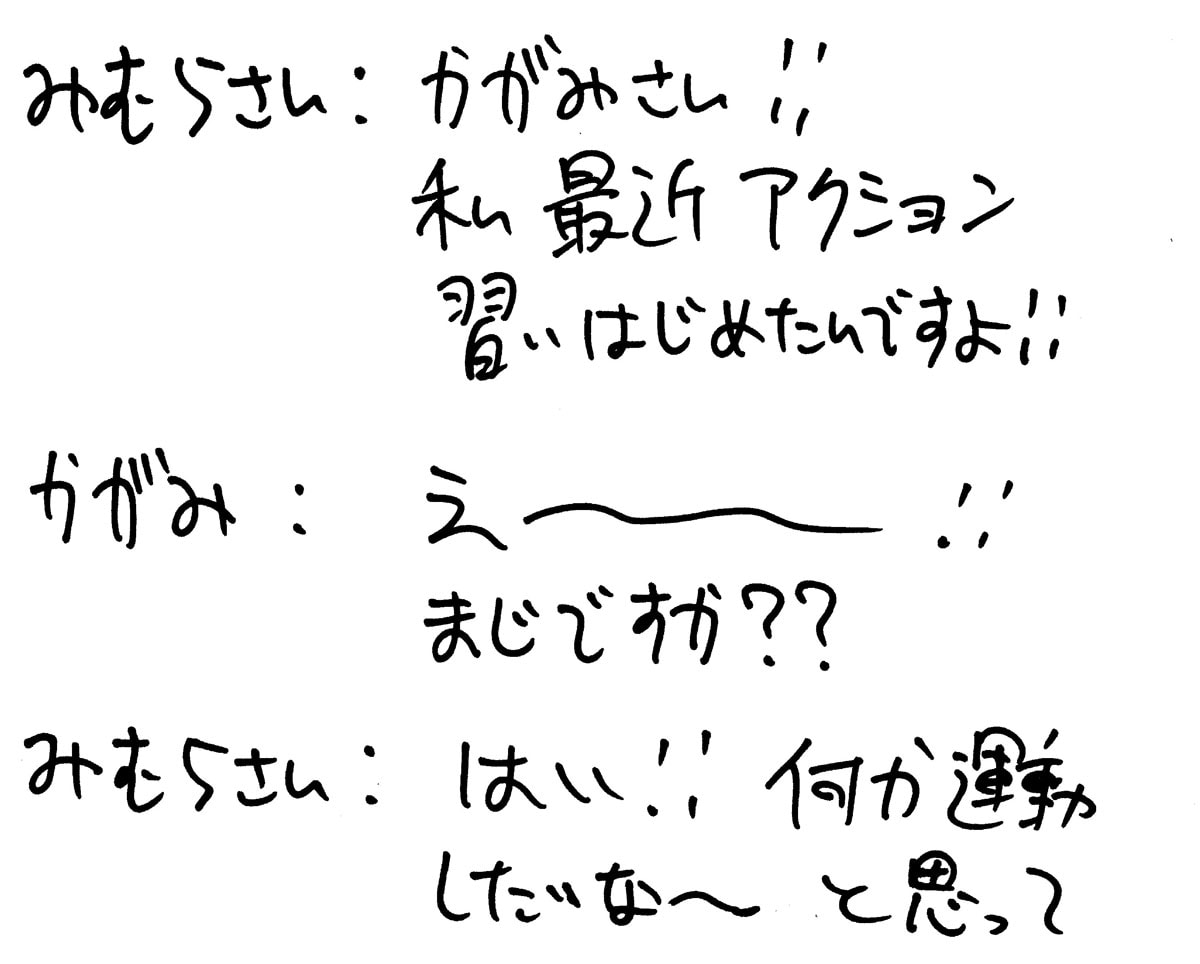 みむらさん：かがみさん!!
私 最近 アクション
習いはじめたんですよ!!
かがみ：え〜!!
まじですか??
みむらさん：はい!! 何か運動
したいな〜 と思って